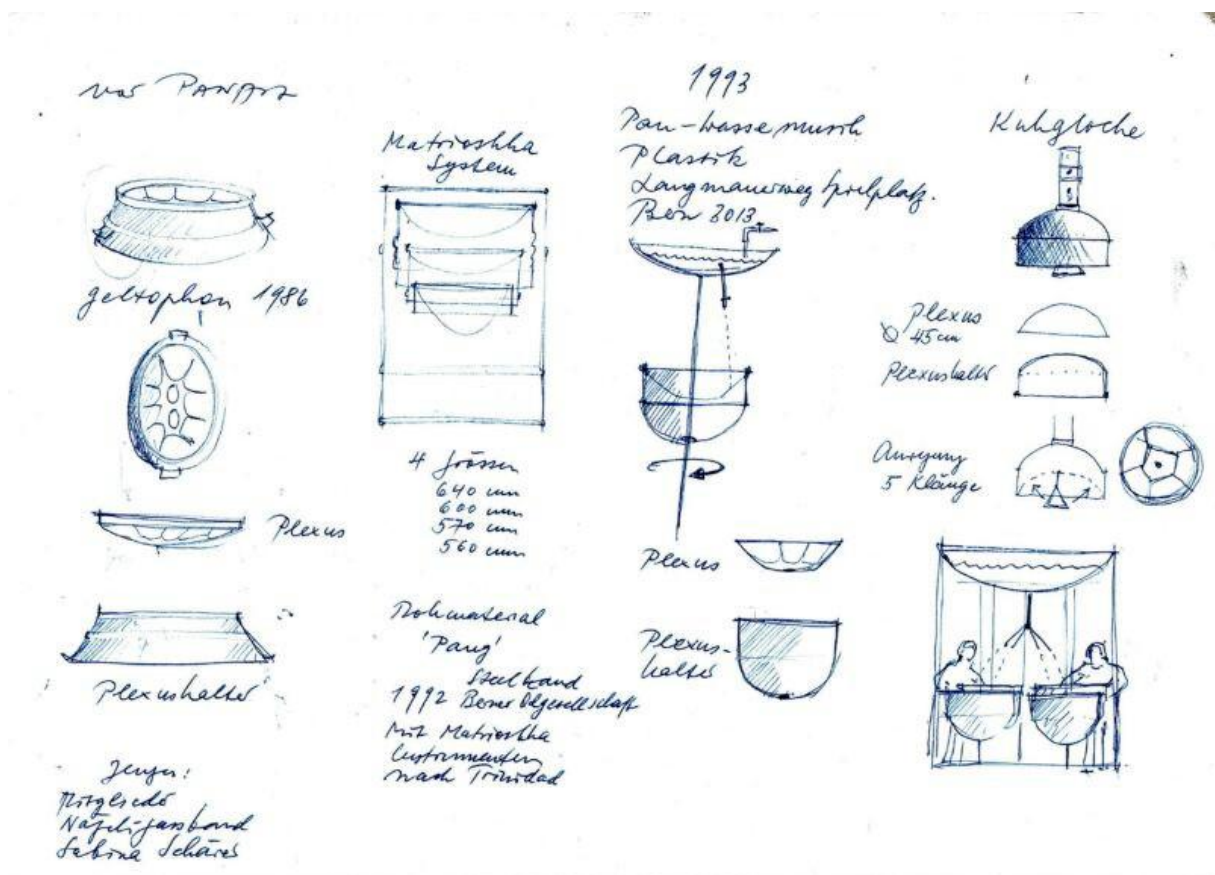 vor PANArt
geltophon 1986
Plexus
Plexushalter
Zeuge:
Mitglieder
Nägeligassband
Sabina Schärer
Matrioshka
System
4 Grössen
640 mm
600 mm
570 mm
560 mm
Rohmaterial
'Pang'
Steelband
1992 Berner Oelgesellschaft
Mit Matrioshka
Instrumenten
nach Trinidad
1993
Pan-Wassermusik
Plastik
Langmauerweg Spielplatz.
Bern 3013
Plexus
Plexus-
halter
Kuhglocke
Plexus
Ø 45 cm
Plexushalter
Anregung
5 Klänge